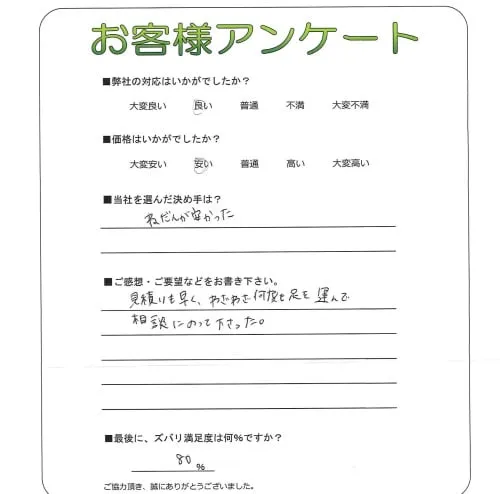 お客様アンケート
■弊社の対応はいかがでしたか？
大変良い 良い 普通 不満 大変不満
■価格はいかがでしたか？
大変安い 安い 普通 高い 大変高い
■当社を選んだ決め手は？
ねだんが安かった
■ご感想・ご要望などをお書き下さい。
見積りも早く、わざわざ何度も足を運んで
相談にのって下さった。
■最後に、ズバリ満足度は何%ですか？
80 %
ご協力頂き、誠にありがとうございました。